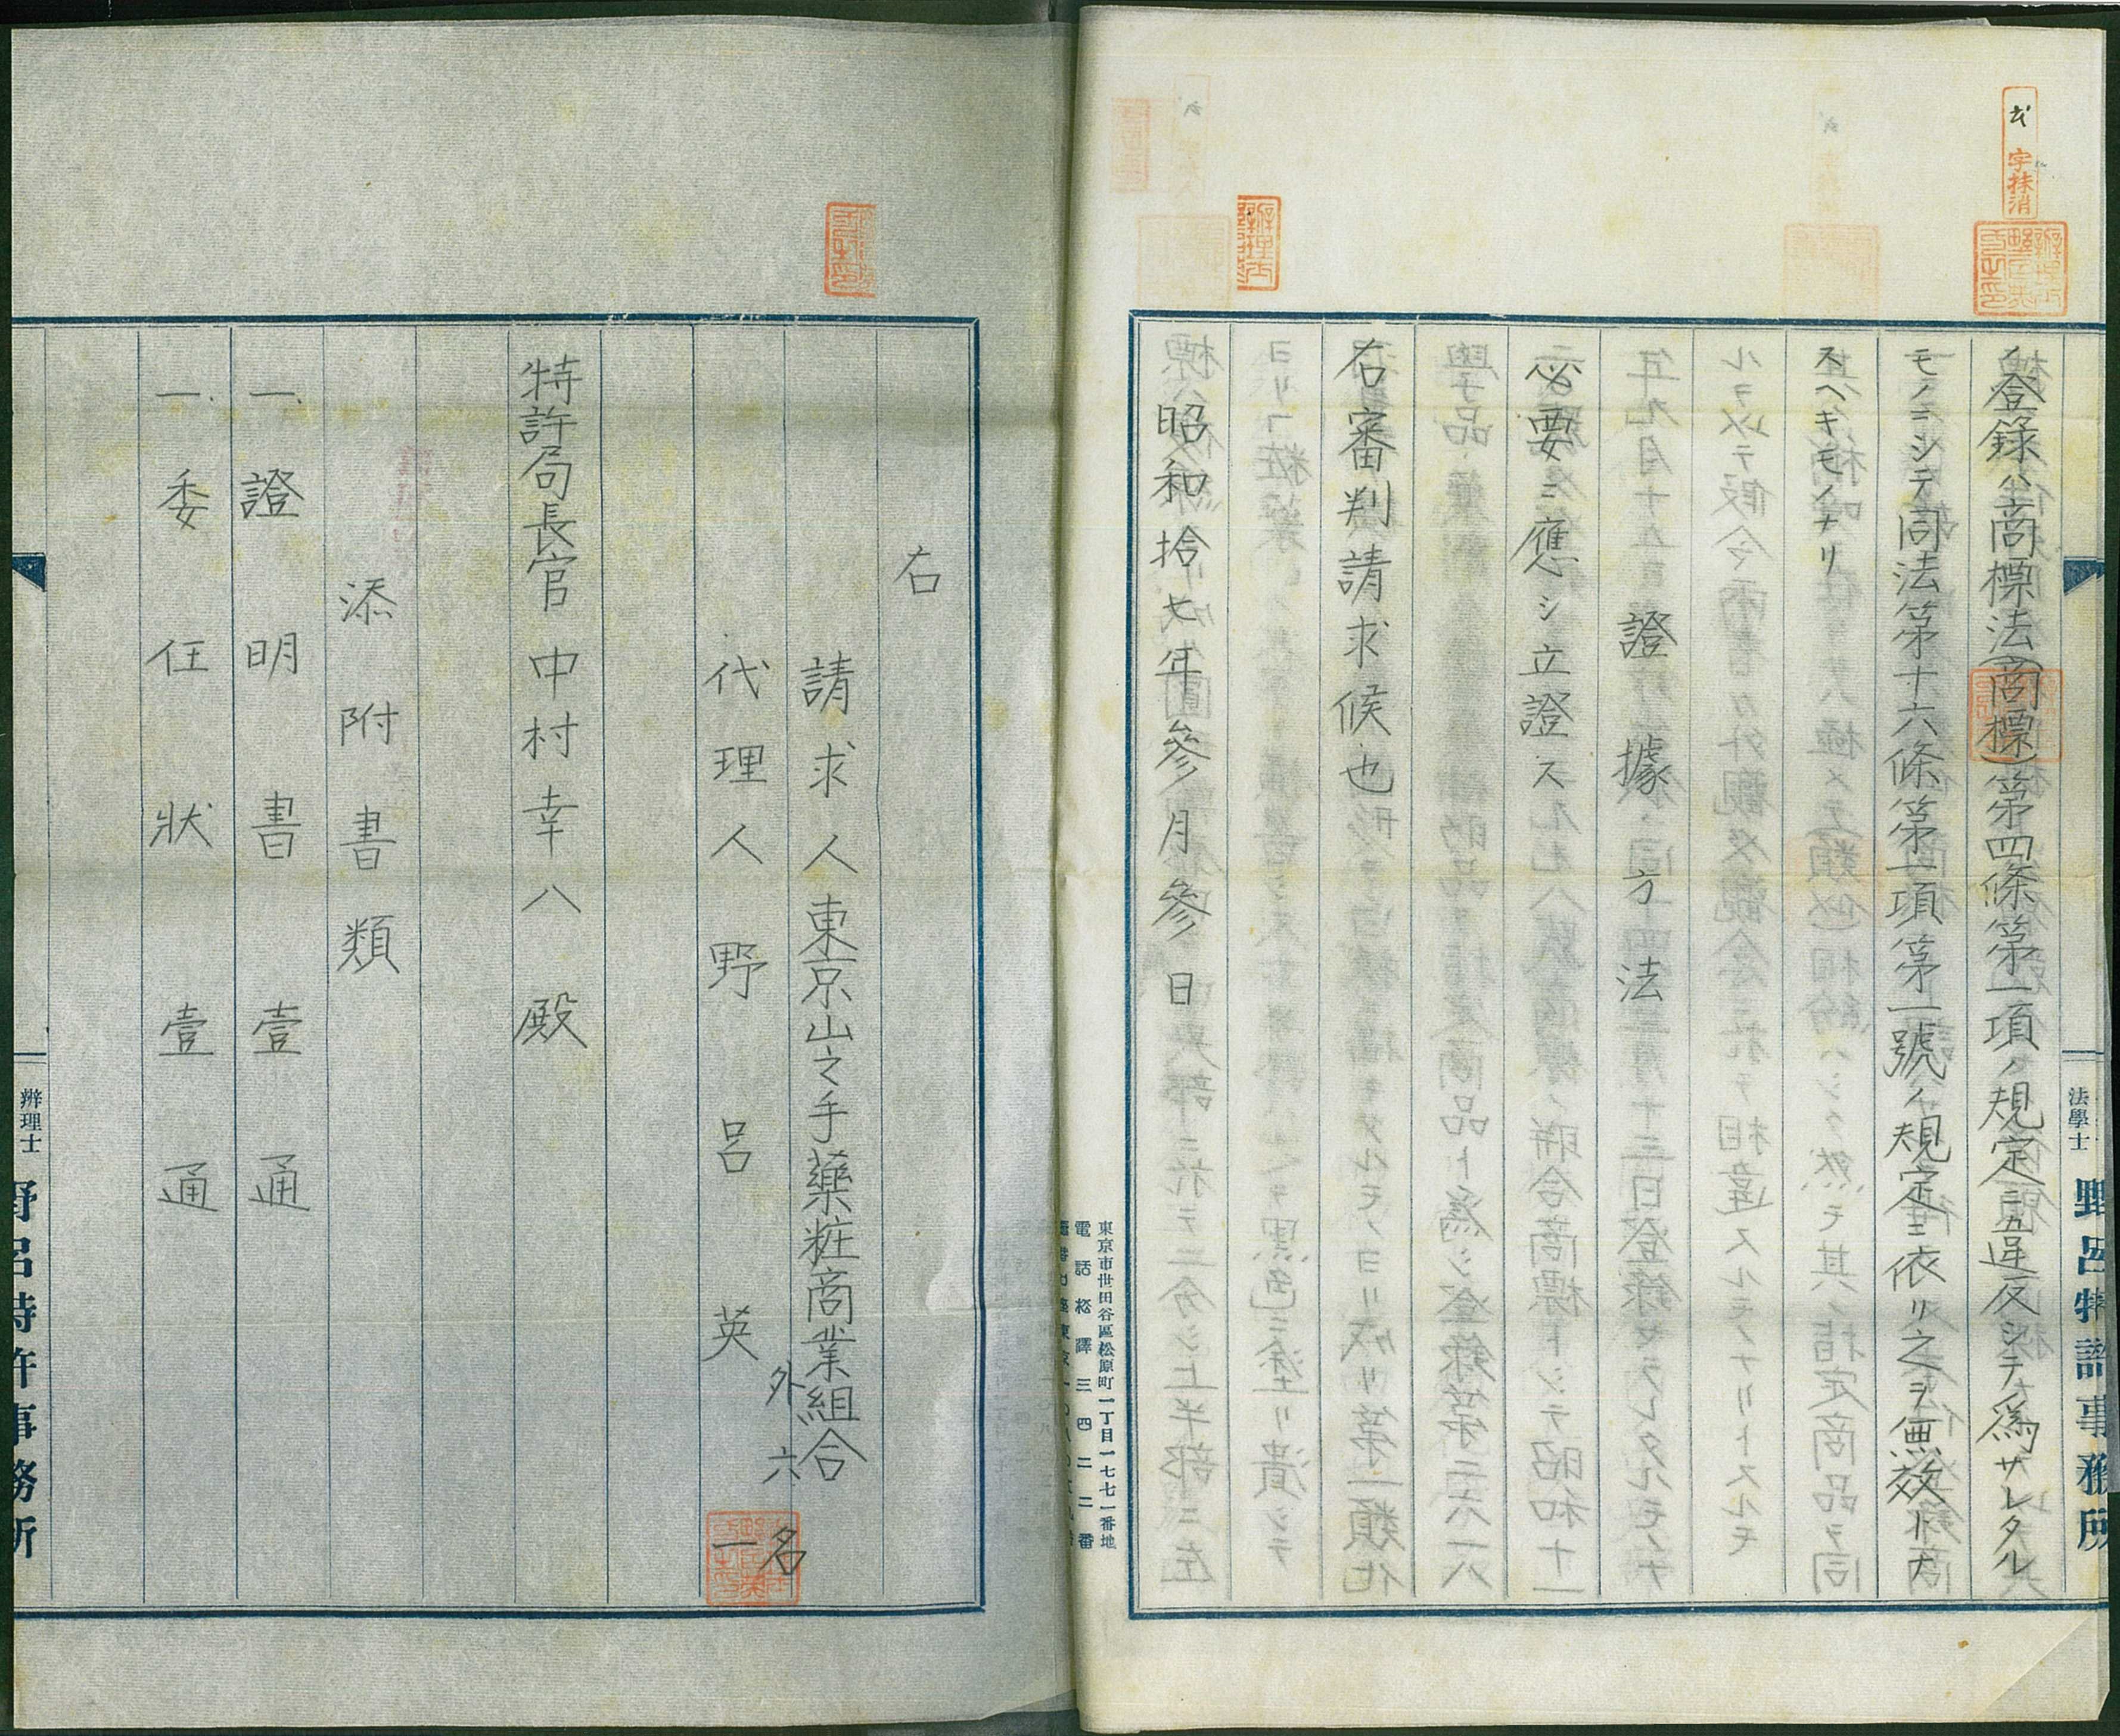 弍字抹消
ノ登錄ハ商標法(商標)第四條第一項ノ規定ニ違反シテ爲サレタル
モノニシテ同法第十六條第一項第一號ノ規定ニ依リ之ヲ無效トナ
スヘキモノナリ
證據方法
必要ニ應シ立證ス
右審判請求候也
昭和拾七年參月參日
法學士 野呂特許事務所
東京市世田谷區松原町一丁目一七七一番地
電話松澤三四二二番
右
請求人東京山之手藥粧商業組合
外六名
代理人野呂英一
特許局長官中村幸八殿
添附書類
一、證明書壹通
一、委任狀壹通
辨理士 野呂特許事務所